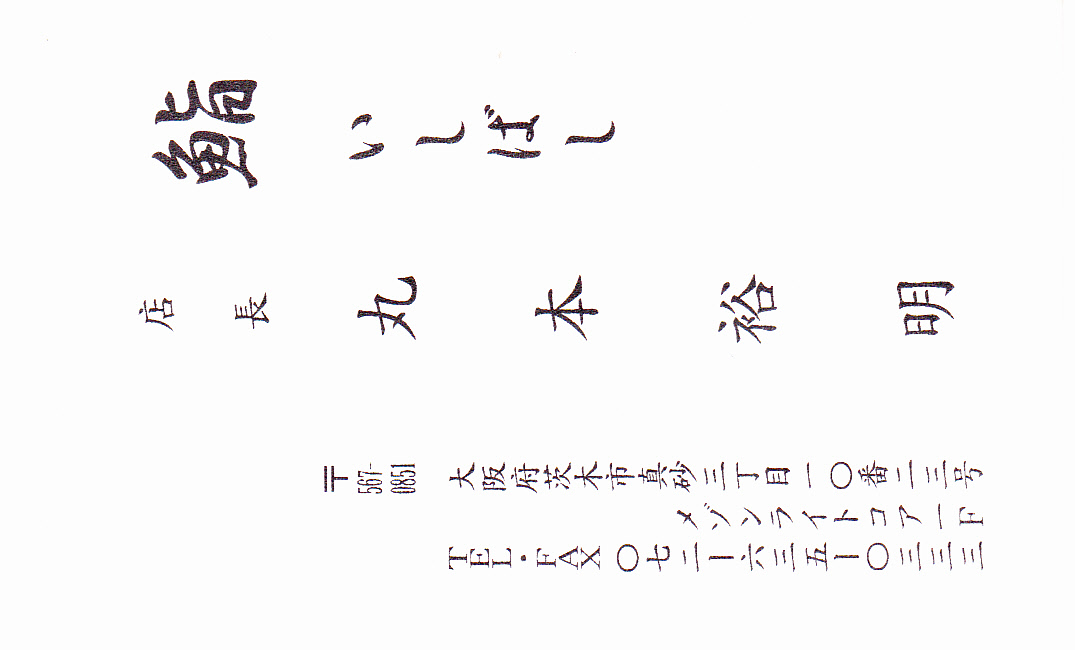 鮨 いしばし
店長 丸本裕明
〒567-0851 大阪府茨木市真砂三丁目一〇番二三号
メゾンライトコア一F
TEL・FAX 〇七二ー六三五ー〇三三三